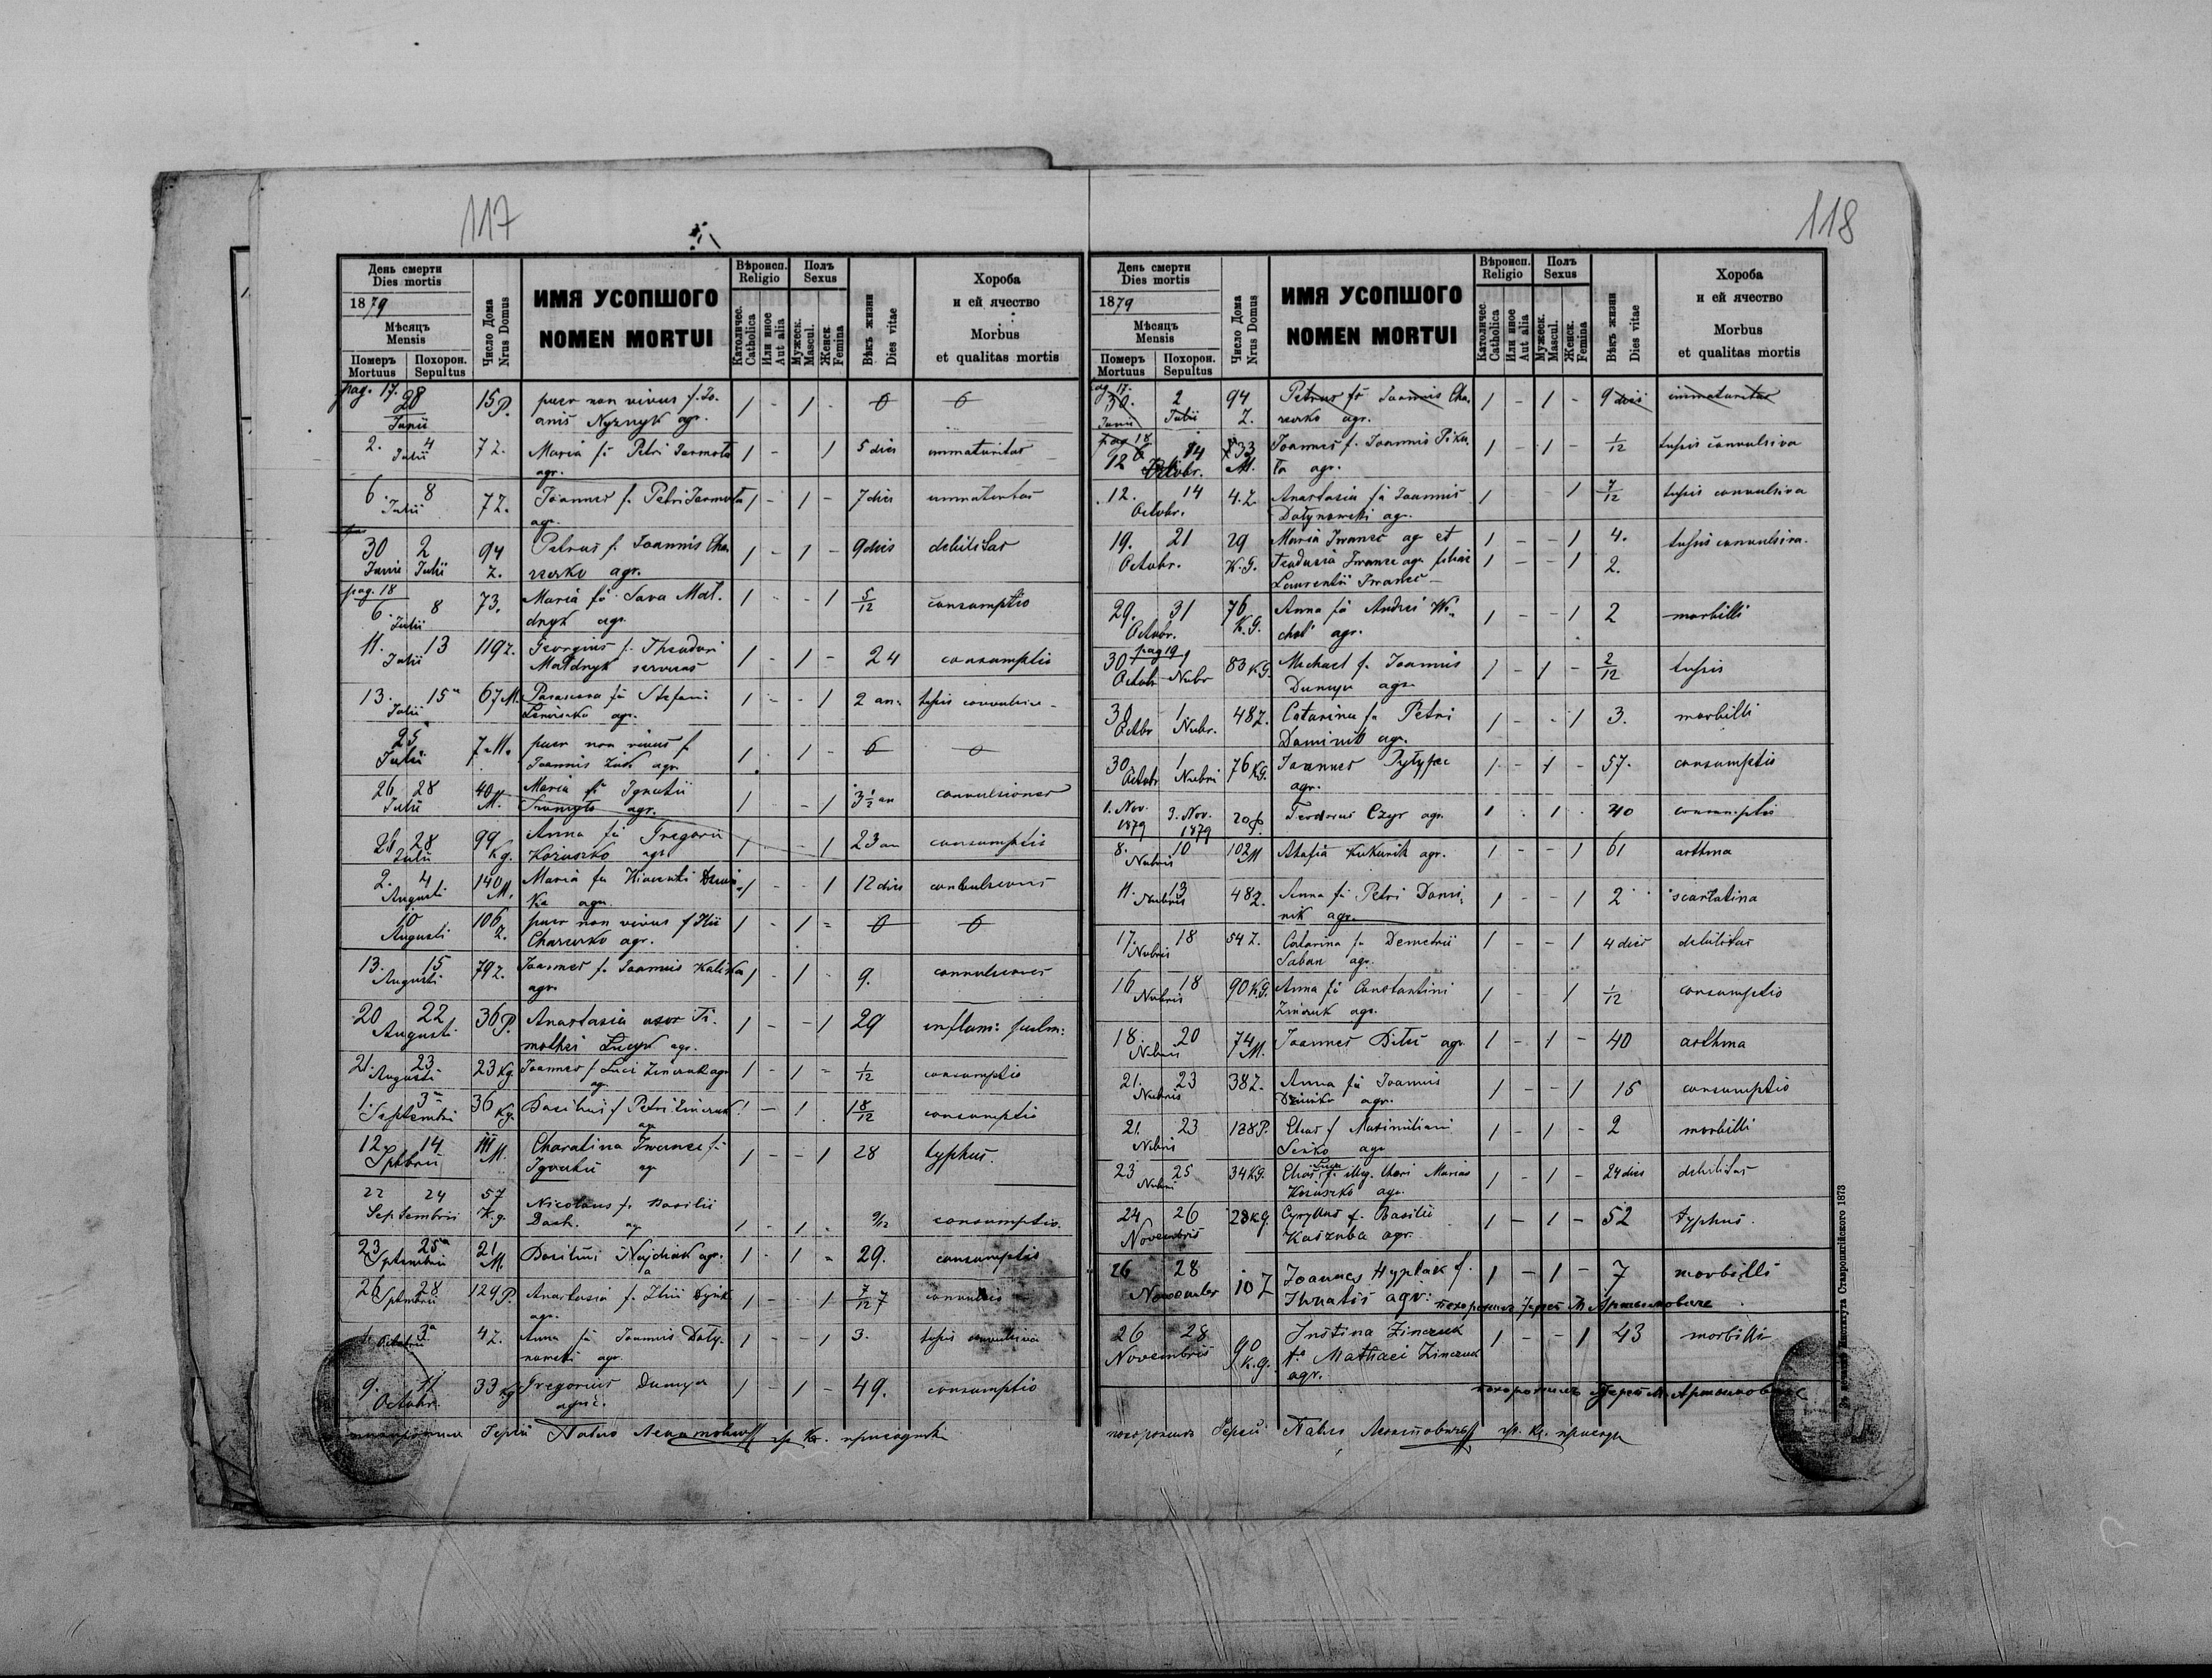 117
День смерти
Dies mortis
1879
Мѣсяцъ
Mensis
Померъ Похорон.
Mortuus Sepultus
Число Дома
Nrus Domus
ИМЯ УСОПШОГО
NOMEN MORTUI
Вѣроисп.
Religio
Католичес.
Catholica
Или иное
Aut alia
Полъ
Sexus
Мужеск.
Mascul.
Женск.
Femina
Вѣкъ жизни
Dies vitae
Хороба
и ей ячество
Morbus
et qualitas mortis
pag. 17.
28 Junii 15 P. puer non vivus f. Jo-
anis Nyznyk agr. 1 - 1 -
2. 4 Julii 7 Z. Maria fa Petri Jarmota
agr. 1 - 1 5 dies immaturitas
6 8 Julii 7 Z. Joannes f. Petri Jarmota
agr. 1 - 1 - 7 dies immaturitas
30 Junii 2 Julii 94 Z. Petrus f. Joannis Cha-
rerko agr. 1 - 1 - 9 dies debilitas
pag. 18
6. 8 Julii 73. Maria fa Sava Mal-
dryk agr. 1 - - 1 5/12 consumptio
11. 13 Julii 119 Z. Georgius f. Theodori
Maldryk servus 1 - 1 - 24 consumptio
13. 15 Julii 67 M. Parascena fa Stefani
agr. 1 - - 1 2 an. tussis convulsiva
25 Julii 7 M. puer non vivus f.
Joannis Zuk agr. 1 - 1 -
26 28 Julii 40 M. Maria fa Ignatii
agr. 1 - 1 3 1/2 an convulsiones
28 Julii 99 Kg. Anna fa Gregorii
Kozuszko agr. 1 - 1 23 an consumptio
2. 4 Augusti 140 M. Maria fa
agr. 1 - - 1 12 dies convulsiones
10 Augusti 106 Z. puer non vivus f Ilii
Charerko agr. 1 - 1 -
13. 15 Augusti 79 Z. Joannes f. Joannis Kaliska
agr. 1 - 1 - 9. convulsiones
20 22 Augusti 36 P. Anastasia uxor Ti-
mothei agr. 1 - - 1 29 inflam: pulm:
21. 23 Augusti 23 Kg. Joannes f Luci Zinczuk agr
1 - 1 - 1/12 consumptio
1. 3 Septembri 36 Kg. Basilius f Petri Zinczuk
agr 1 - 1 . 18/12 consumptio
12 14 Sptbrii III M. Charatina Iwanec fa
Ignatii agr 1 - - 1 28 typhus.
22 24 Septembrii 57 K.g. Nicolaus f. Basilii
agr 1 - 1 - 9/12 consumptio.
23 25 Sptembrii 21 M. Basilius Najdiuk agr.
1 - 1 - 29. consumptio
26 28 Sptmbrii 129 P. Anastasia f. Ilii
agr. 1 - - 1 7/12 7
3 Octobrii 4 Z. Anna fa Joannis Doly-
nowski agr. 1 - - 1 3. tussis convulsiva
9. 11 Octobr. 33 Kg Gregorius Dumya
agric. 1 - 1 - 49. consumptio
118
День смерти
Dies mortis
1879
Мѣсяцъ
Mensis
Померъ Похорон.
Mortuus Sepultus
Число Дома
Nrus Domus
ИМЯ УСОПШОГО
NOMEN MORTUI
Вѣроисп.
Religio
Католичес
Catholica
Или иное
Aut alia
Полъ
Sexus
Мужеск.
Mascul.
Женск.
Femina
Вѣкъ жизни
Dies vitae
Хороба
и ей ячество
Morbus
et qualitas mortis
ag 17.
30. Junii 2 Julii 94 Z. Petrus f. Joannis Cha-
rerko agr. 1 - 1 - 9 dies immaturitas
pag 18
12 14 Octobr. 33 M. Joannes f. Joannis Piku-
ta agr. 1 - 1 - 1/12 tussis convulsiva
12. 14 Octobr. 4. Z. Anastasia fa Joannis
Dolynowski agr. 1 - 1 7/12 tussis convulsiva
19. 21 Octobr. 29 K.G. Maria Iwanec agr et 1 - - 1 4.
Teodosia Iwanec agr filiae 1 - - 1 2. tussis convulsiva.
Laurentii Iwanec
29. 31 Octobr. 76 K.G. Anna fa Andrei Wi-
chot agr. 1 - - 1 2 morbilli
pag 19
30 Octobr 1 Nubr 83 KG. Michael f. Joannis
Dumya agr. 1 - 1 - 2/12 tussis
30 Octbr 1 Nubr. 48 Z. Catarina fa Petri
Dominik agr. 1 - - 1 3. morbilli
30 Octobr 1 Nubri 76 KG. Joannes Pylypec
agr. 1 - 1 - 57. consumptio
1. Nov. 1879 3. Nov. 1879 20 P. Teodorus Czyr agr. 1 . 1 . 40 consumptio
8. 10 Nubris 102 M Atafia Kukurik agr. 1 - - 1 61 asthma
11. 13 Nubris 48 Z. Anna fa Petri Domi-
nik agr. 1 - - 1 2 scarlatina
17. 18 Nubris 54 Z. Catarina fa Demetrii
Saban agr. 1 - - 1 4 dies debilitas
16 18 Nubris 90 K.G. Anna fa Constantini
Zinczuk agr. 1 - - 1 1/12 consumptio
18. 20 Nubris 74 M. Joannes Bilis agr. 1 - 1 - 40 asthma
21. 23 Nubris 38 Z. Anna fa Joannis
Dziuiko agr. 1 - - 1 15 consumptio
21. 23 Nubris 128 P. Elias f Maximiliani
Sesko agr 1 - 1 - 2 morbilli
23 25 Nubri 34 KG. Elias Luca f. illeg. thori Mariae
Kozuszko agr. 1 - 1 - 24 dies debilitas
24 26 Novembris 28 KG. Cyryllus f. Basilii
Kaszuba agr. 1 - 1 - 52 typhus.
26 28 November 10 Z Joannes Hyplak f.
Ihnatii agr. 1 - 1 - 7 morbilli
26 28 Novembris 90 K.G. Justina Zinczuk
fa Mathaei Zinczuk 1 - - 1 43 morbilli
agr.
похоронилъ Іерей Павло
Института Ставропигійского 1873